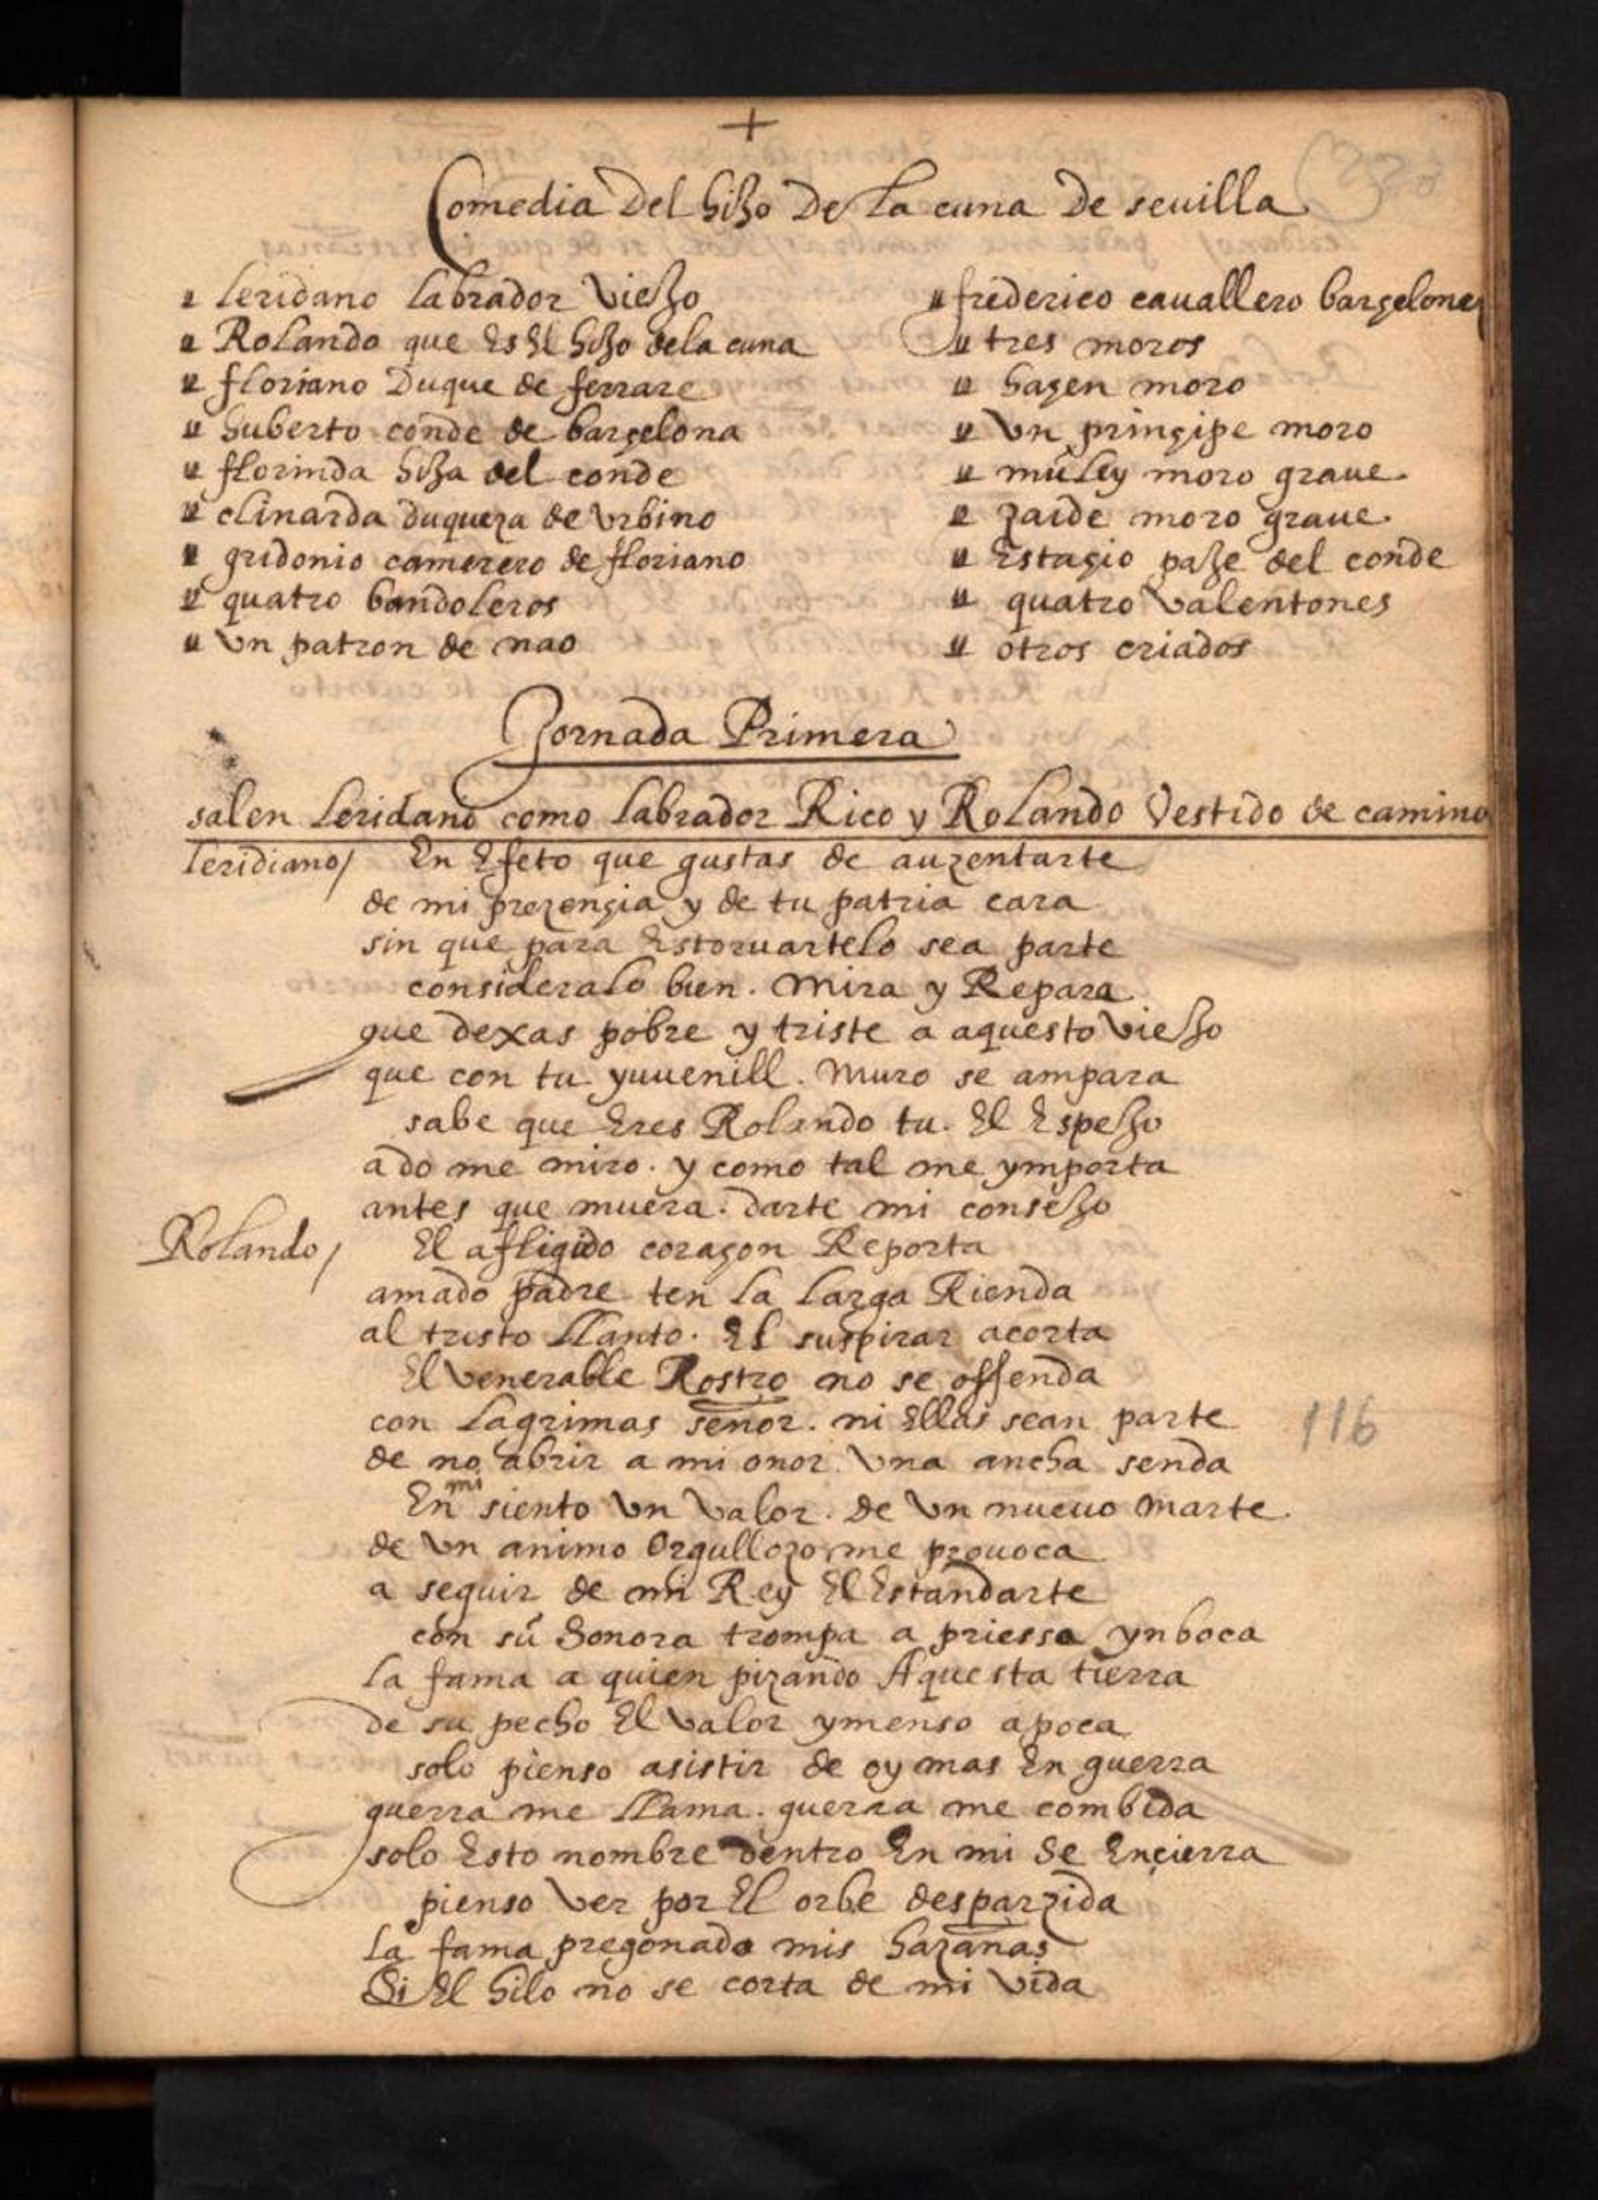 +
Comedia Del hijo De la cuna De seuilla
leridano labrador viejo
Rolando que Es El hijo de la cuna
floriano Duque de ferrare
huberto conde de barçelona
florinda hija del conde
clinarda duqueza de vrbino
gridonio camerero de floriano
quatro bandoleros
vn patron de nao
frederico cauallero barçelones
tres moros
haçen moro
vn prinçipe moro
muley moro graue
zaide moro graue
Estaçio paje del conde
quatro valentones
otros criados
Jornada Primera
salen leridano como labrador Rico y Rolando Vestido de camino
leridiano/ En Efeto que gustas de auzentarte
de mi prezençia y de tu patria cara
sin que para Estoruartelo sea parte
consideralo bien. mira y Repara
que dexas pobre y triste a aquesto viejo
que con tu yuuenill. muro se ampara
sabe que Eres Rolando tu. El Espejo
a do me miro. y como tal me ymporta
antes que muera. darte mi consejo
Rolando/ El afligido coraçon Reporta
amado padre ten la larga Rienda
al tristo llanto. El suspirar acorta
El venerable Rostro no se offenda
con lagrimas señor. ni Ellas sean parte
de no abrir a mi onor. vna ancha senda
En mi siento vn valor. de vn nueuo marte.
de vn animo orgullozo me prouoca
a seguir de mi Rey El Estandarte
con su Sonora trompa a priessa ynboca
la fama a quien pizando Aquesta tierra
de su pecho El valor ymenso apoca
solo pienso asistir de oy mas En guerra
guerra me llama. guerra me combida
solo Esto nombre dentro En mi Se Ençierra
pienso ver por El orbe desparzida
la fama pregonado mis hazañas
Si El hilo no se corta de mi vida
116